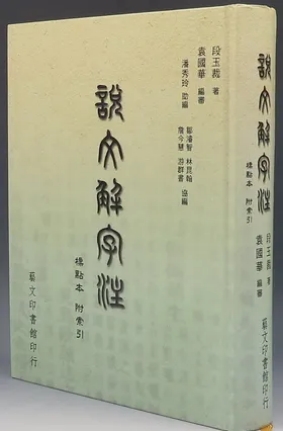 段玉裁 著
袁國華 編審
潘秀玲 助編
鄒濬智 林
詹今慧 游群書 協編
說文解字注
標點本 附索引
藝文印書館印行
說文解字注
標點本 附索引
段玉裁 著
袁國華 編審
藝文印書館印行